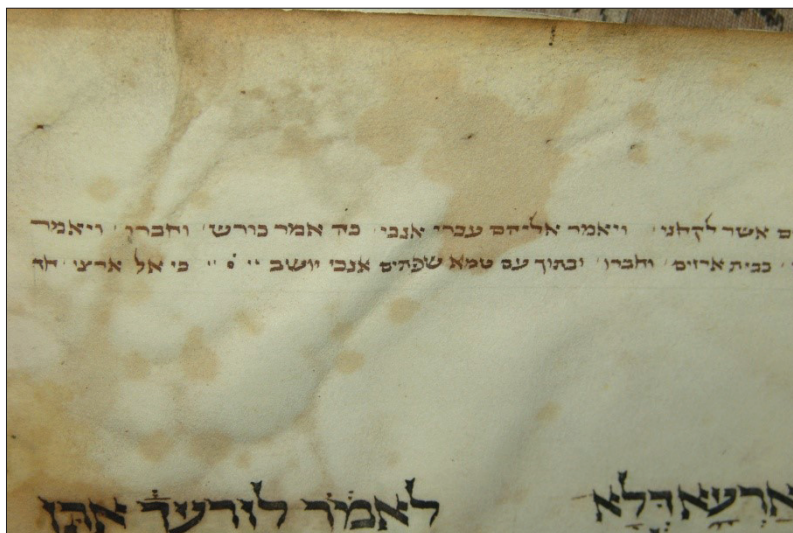 ם אשר לקחני ויאמר אליהם עברי אנכי כה אמר כורש וחברו ויאמר
בבית ארזים וחברו ובתוך עם טמא שפתים אנכי יושב ס כי אל ארצי חד
ארעא דלא לאמר לזרעך אתן